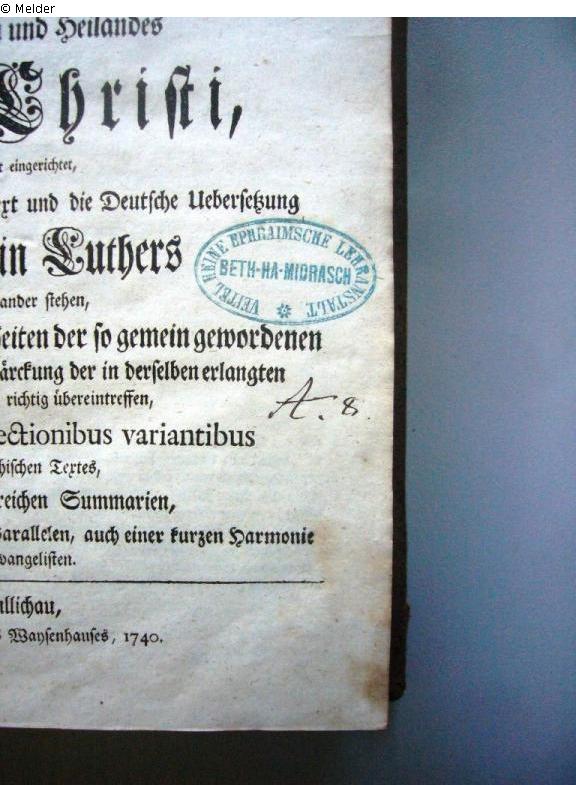 © Melder
und Heilandes
Christi,
eingerichtet,
und die Deutsche Uebersetzung
Luthers
ander stehen,
Seiten der so gemein gewordenen
ärckung der in derselben erlangten
richtig übereintreffen,
ectionibus variantibus
hischen Textes,
reichen Summarien,
Parallelen, auch einer kurzen Harmonie
vangelisten.
llichau,
Waysenhauses, 1740.
VEITEL HEINE EPHRAIMSCHE LEHRANSTALT
BETH-HA-MIDRASCH
A. 8.